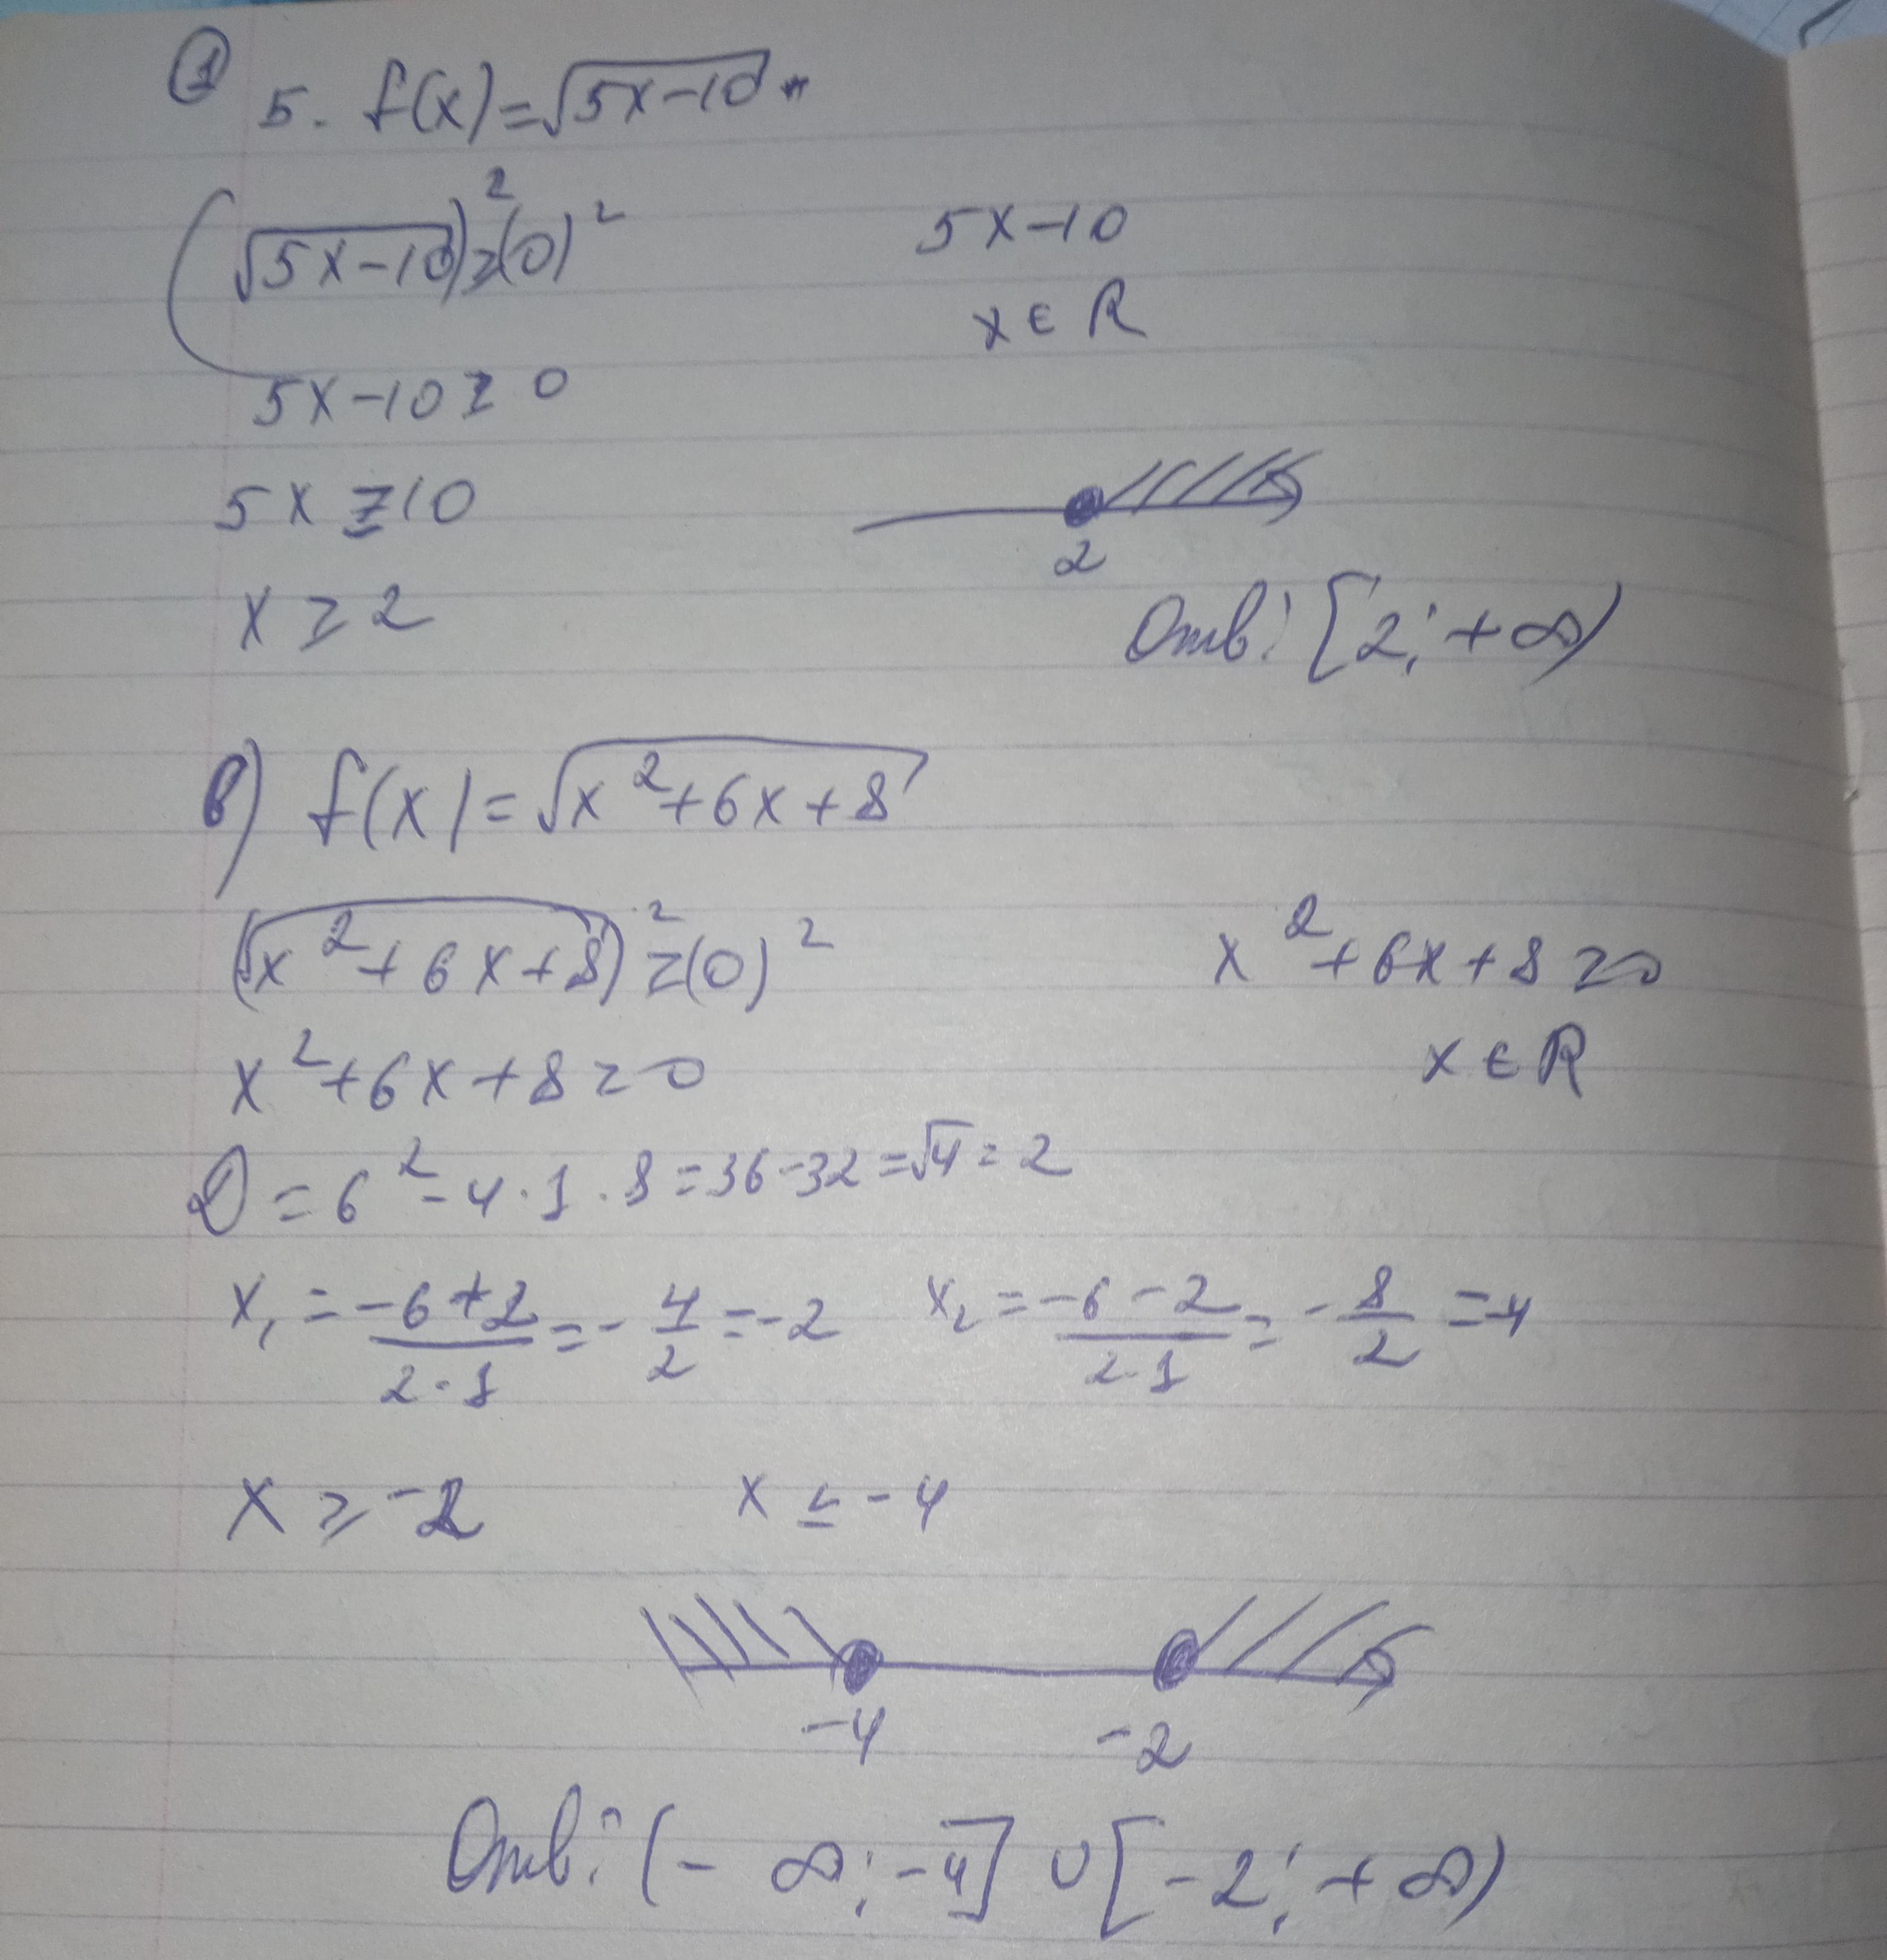 ① 5. f(x)=√(5x-10)
(√(5x-10))²≥(0)²
5x-10
x∈R
5x-10≥0
5x≥10
x≥2
2
Отв: [2; +∞)
в) f(x)=√(x²+6x+8)
(√(x²+6x+8))²≥(0)²
x²+6x+8≥0
x∈R
x²+6x+8≥0
D=6²-4·1·8=36-32=√4=2
x₁=(-6+2)/(2·1)=-4/2=-2 x₂=(-6-2)/(2·1)=-8/2=-4
x≥-2 x≤-4
-4 -2
Отв: (-∞; -4]∪[-2; +∞)